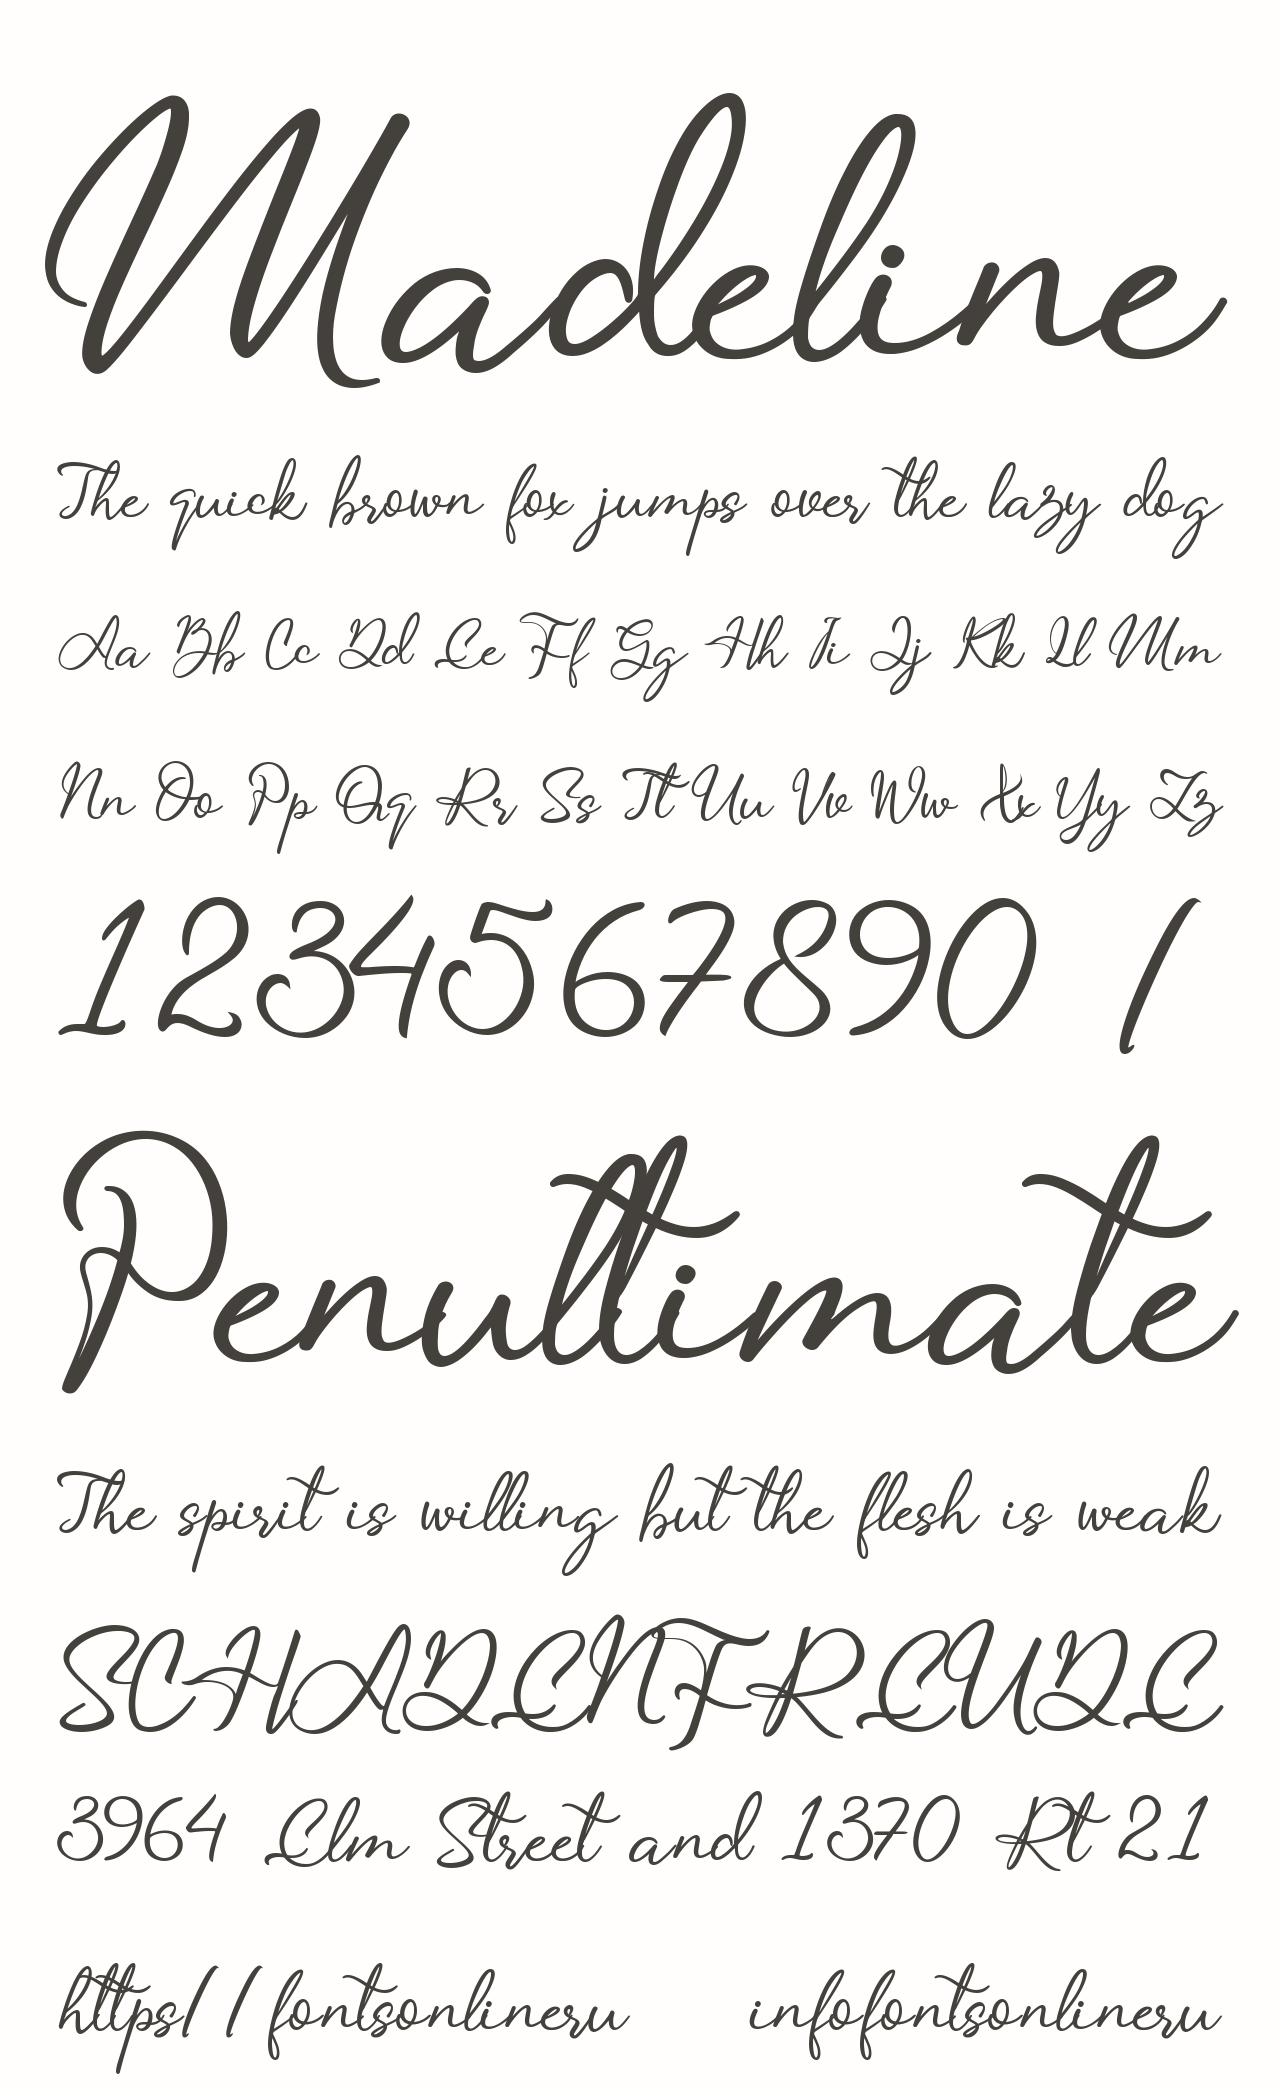 Madeline
The quick brown fox jumps over the lazy dog
Aa Bb Cc Dd Ee Ff Gg Hh Ii Jj Kk Ll Mm
Nn Oo Pp Qq Rr Ss Tt Uu Vv Ww Xx Yy Zz
1234567890 /
Penultimate
The spirit is willing but the flesh is weak
SCHADENFREUDE
3964 Elm Street and 1370 Rt 21
https//fontsonlineru infofontsonlineru